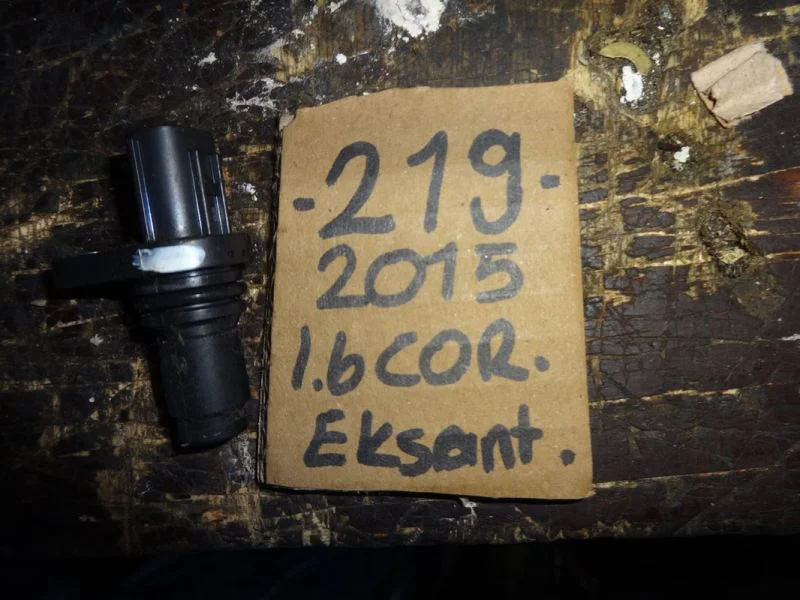 -219-
2015
1.6 COR.
Eksant.